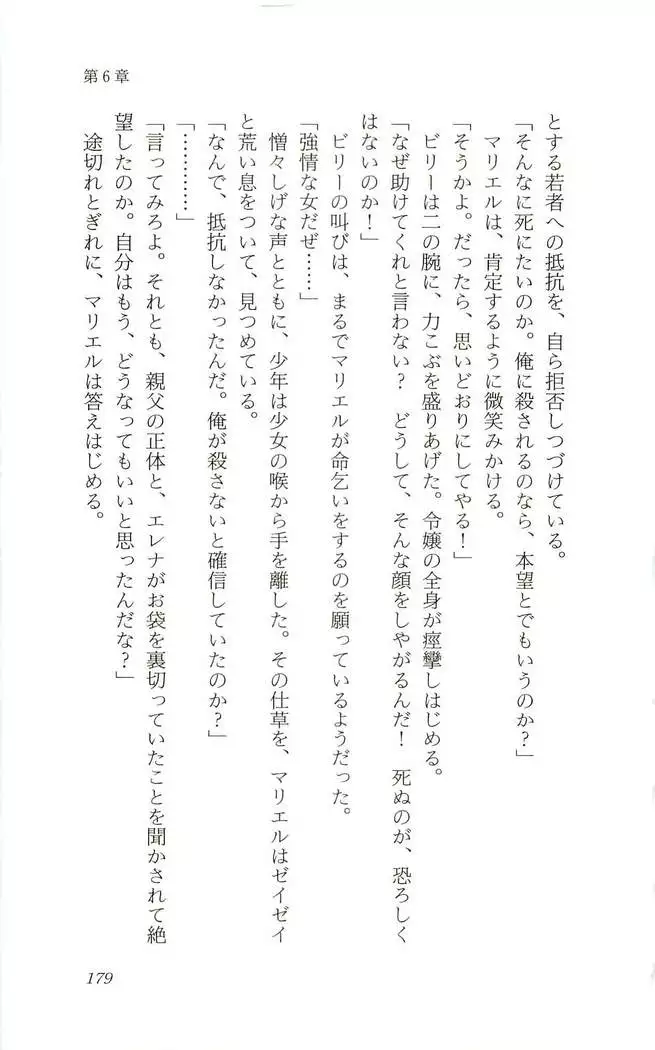 第6章
とする若者への抵抗を、自ら拒否しつづけている。
「そんなに死にたいのか。俺に殺されるのなら、本望とでもいうのか?」
マリエルは、肯定するように微笑みかける。
「そうかよ。だったら、思いどおりにしてやる!」
ビリーは二の腕に、力こぶを盛りあげた。令嬢の全身が痙攣しはじめる。
「なぜ助けてくれと言わない? どうして、そんな顔をしやがるんだ! 死ぬのが、恐ろしく
はないのか!」
ビリーの叫びは、まるでマリエルが命乞いをするのを願っているようだった。
「強情な女だぜ……」
憎々しげな声とともに、少年は少女の喉から手を離した。その仕草を、マリエルはゼイゼイ
と荒い息をついて、見つめている。
「なんで、抵抗しなかったんだ。俺が殺さないと確信していたのか?」
「…………」
「言ってみろよ。それとも、親父の正体と、エレナがお袋を裏切っていたことを聞かされて絶
望したのか。自分はもう、どうなってもいいと思ったんだな?」
途切れとぎれに、マリエルは答えはじめる。
179